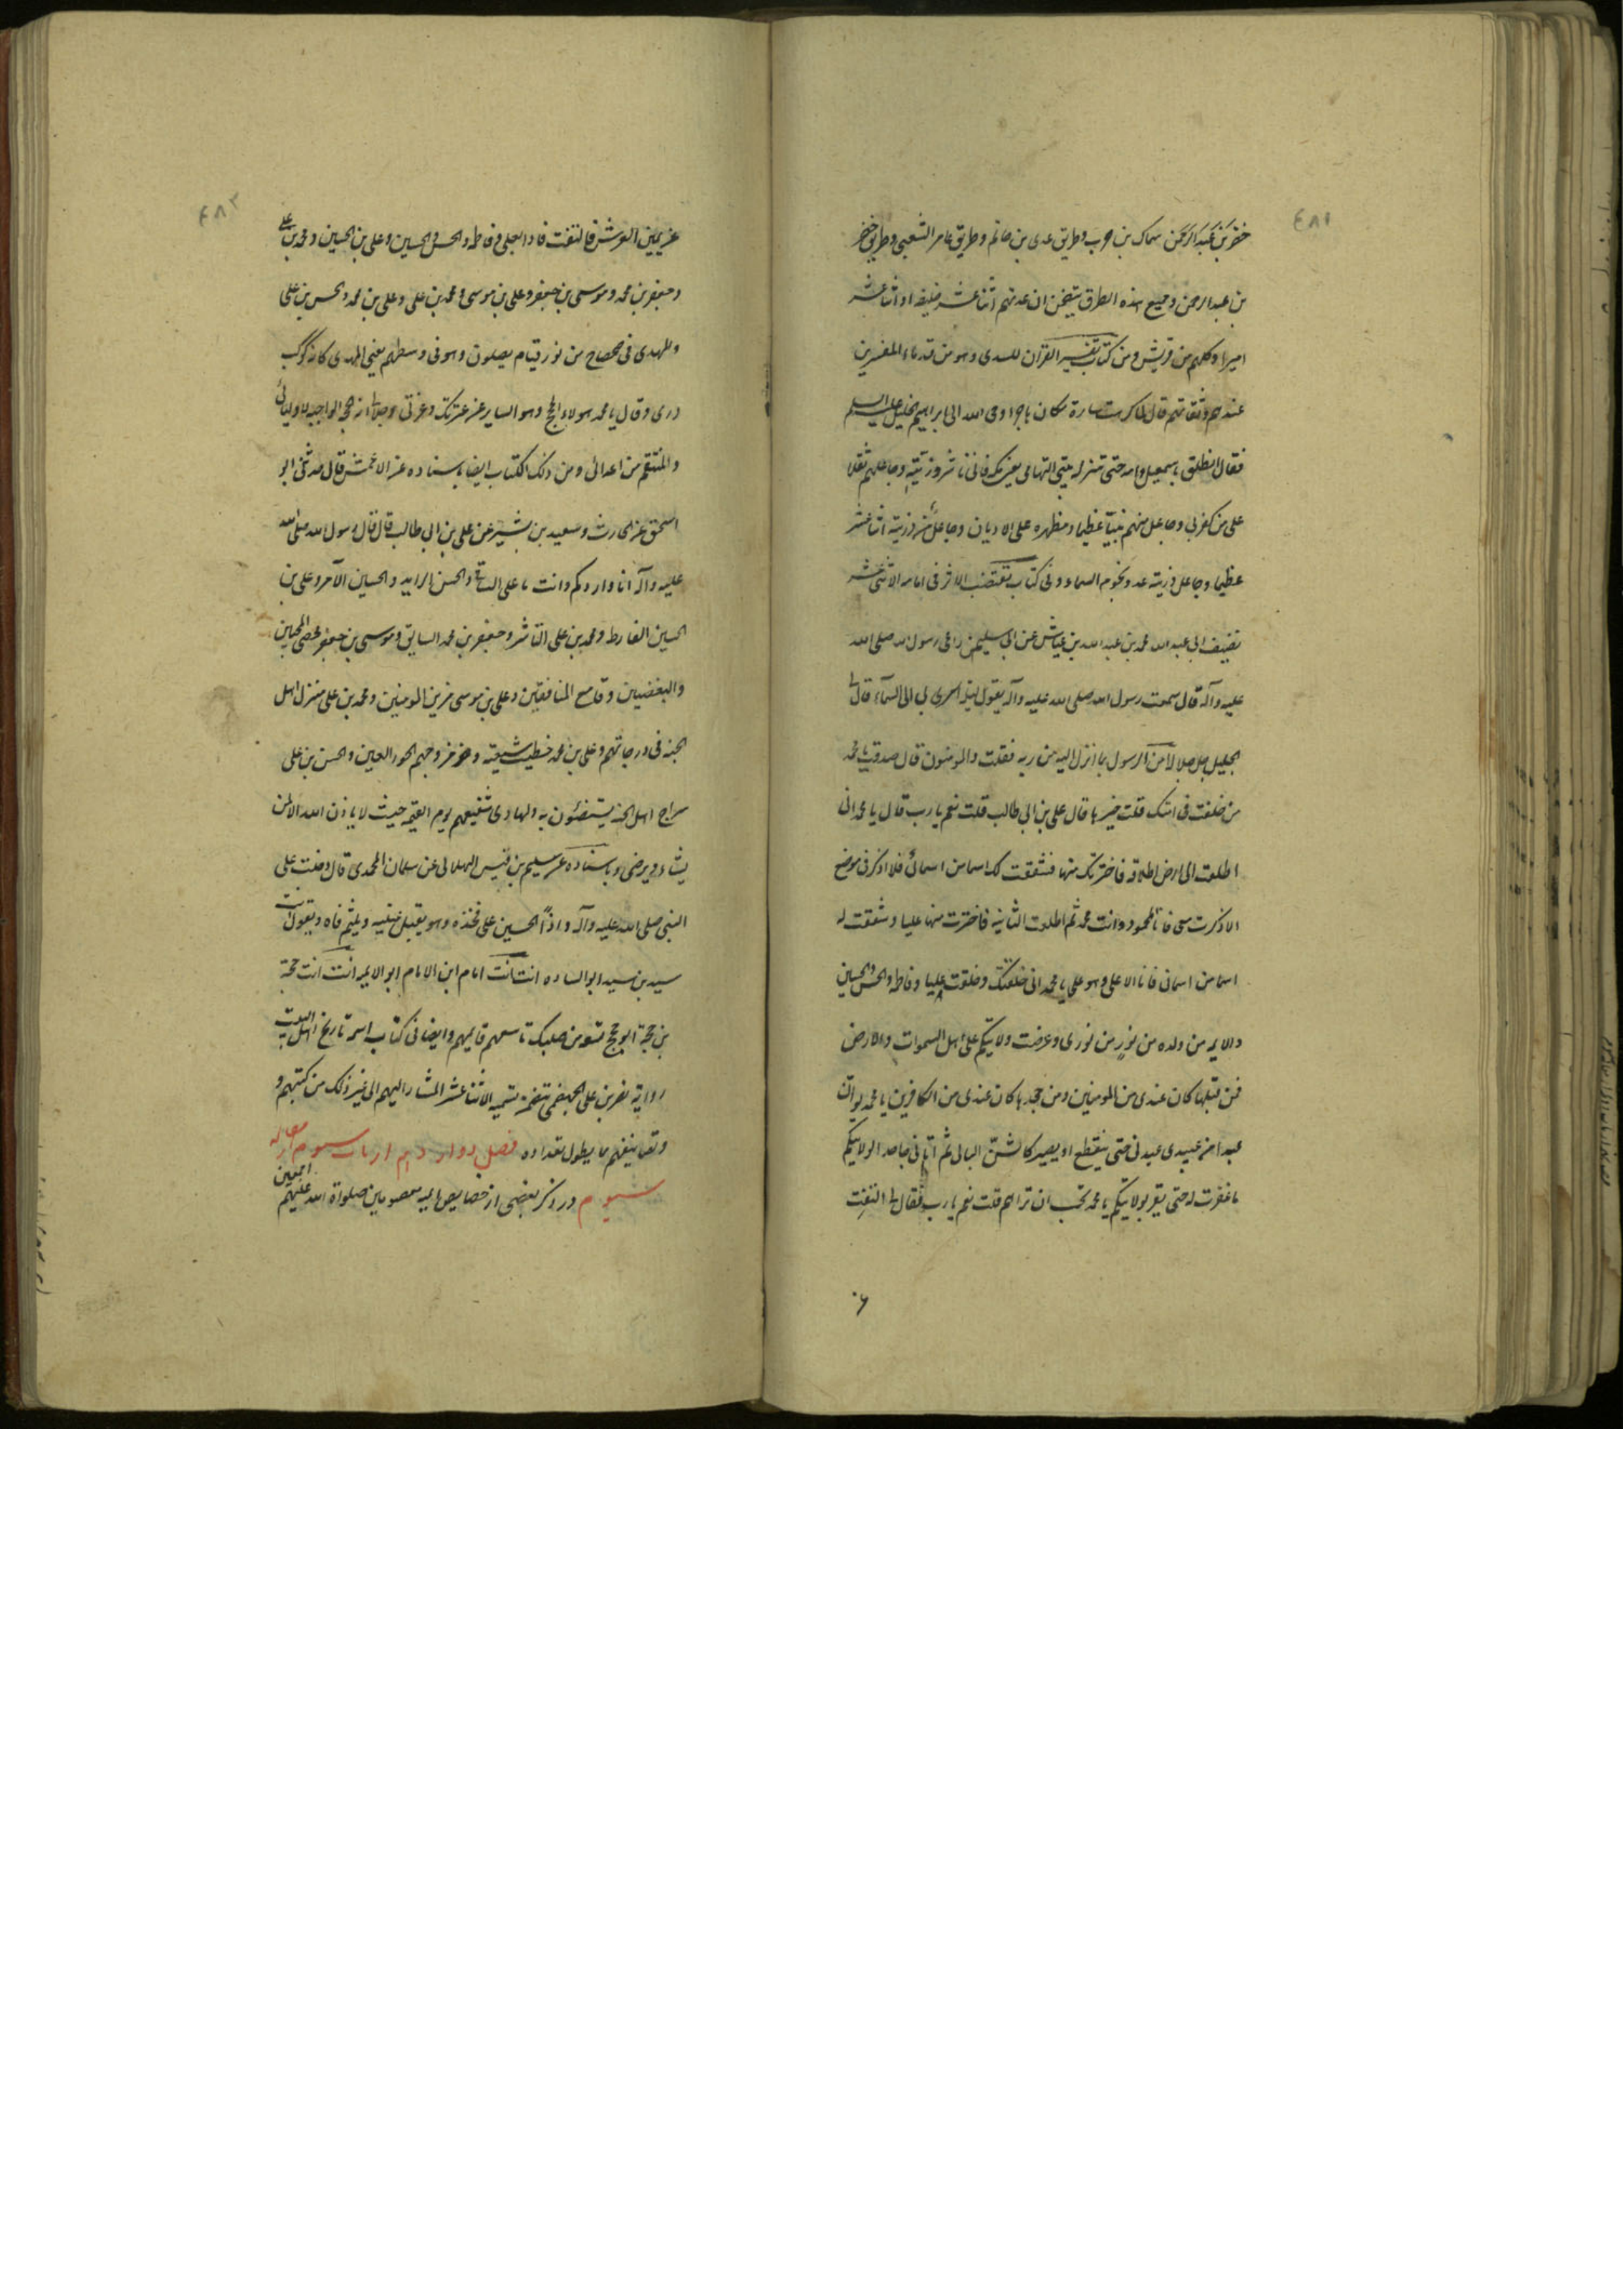 ٤٨١
بن عبد الرحمن سماك بن حرب وطريق عدى بن حاتم وطريق عامر الشعبى وطريق
بن عبد الرحمن وجميع هذه الطرق يتضمن ان عدتهم اثنا عشر خليفه او اثنا عشر
اميرا وكلهم من قريش ومن كتاب تفسير القران للسدى وهو من قدماء المفسرين
عندهم وثقاتهم قال لما كرهت سارة مكان هاجر اوحى الله الى ابراهيم الخليل عليه السلم
فقال انطلق باسمعيل وامه حتى تنزله بيتى التهامى يعنى مكه فانى ناشر ذريته وجاعلهم ثقلا
على من كفر بى وجاعل منهم نبيا عظيما ومظهره على الاديان وجاعل من ذريته اثنا عشر
عظيما وجاعل ذريته عدد نجوم السماء وفى كتاب مقتضب الاثر فى امامه الاثنى عشر
تصنيف ابى عبد الله محمد بن عبد الله بن عياش عن ابى سليمن راعى رسول الله صلى الله
عليه وآله قال سمعت رسول الله صلى الله عليه وآله يقول ليلة اسرى بى الى السمآء قال لى
الجليل جل جلاله امن الرسول بما انزل اليه من ربه فقلت والمومنون قال صدقت يا محمد
من خلفت فى امتك قلت خيرها قال على بن ابى طالب قلت نعم يا رب قال يا محمد انى
اطلعت الى الارض اطلاعه فاخترتك منها فشققت لك اسما من اسمائى فلا اذكر فى موضع
الا ذكرت معى فانا المحمود وانت محمد ثم اطلعت الثانيه فاخترت منها عليا وشققت له
اسما من اسمائى فانا الاعلى وهو على يا محمد انى خلقتك وخلقت عليا وفاطمه والحسن والحسين
والايمه من ولده من نور من نورى وعرضت ولايتكم على اهل السموات والارض
فمن قبلها كان عندى من المومنين ومن جحدها كان عندى من الكافرين يا محمد لو انّ
عبدا من عبيدى عبدنى حتى ينقطع او يصير كالشنّ البالى ثم اتانى جاحدا لولايتكم
ما غفرت له حتى يقر بولايتكم يا محمد تحب ان تراهم قلت نعم يا رب فقال لى التفت
٤٨٢
عن يمين العرش فالتفت فاذا بعلى وفاطمه والحسن والحسين وعلى بن الحسين ومحمد بن على
وجعفر بن محمد وموسى بن جعفر وعلى بن موسى ومحمد بن على وعلى بن محمد والحسن بن على
والمهدى فى ضحضاح من نور قيام يصلون وهو فى وسطهم يعنى المهدى كانه كوكب
درى وقال يا محمد هولاء الحجج وهو الثاير من عترتك وعزتى وجلالى انه الحجه الواجبه لاوليائى
والمنتقم من اعدائى ومن ذلك الكتاب ايضا باسناده عن الاعمش قال حدثنى ابو
اسحق عن الحارث وسعيد بن بشير عن على بن ابى طالب قال قال رسول الله صلى الله
عليه وآله انا واردكم وانت يا على الساقى والحسن الرايد والحسين الآمر وعلى بن
الحسين الفارط ومحمد بن على الناشر وجعفر بن محمد السايق وموسى بن جعفر محصى المحبين
والمبغضين وقامع المنافقين وعلى بن موسى مزين المومنين ومحمد بن على منزل اهل
الجنه فى درجاتهم وعلى بن محمد خطيب شيعته ومزوجهم الحور العين والحسن بن على
سراج اهل الجنه يستضئون به والهادى شفيعهم يوم القيمه حيث لا ياذن الله الا لمن
يشاء ويرضى وباسناده عن سليم بن قيس الهلالى عن سلمان المحمدى قال دخلت على
النبى صلى الله عليه وآله واذا الحسين على فخذه وهو يقبل عينيه ويلثم فاه ويقول انت
سيد بن سيد ابو الساده انت امام ابن الامام ابو الايمه انت حجة
بن حجة ابو حجج تسعه من صلبك تاسعهم قايمهم وايضا فى كتاب اسمه تاريخ اهل البيت
رواية نصر بن على الجهضمى يتضمن تسميه الاثنا عشر المشار اليهم الى غير ذلك من كتبهم و
وتصانيفهم ما يطول تعداده فصل دوازدهم از باب سيوم از مقاله
سيوم در ذكر بعضى از خصايص ايمه معصومين صلواة الله عليهم اجمعين